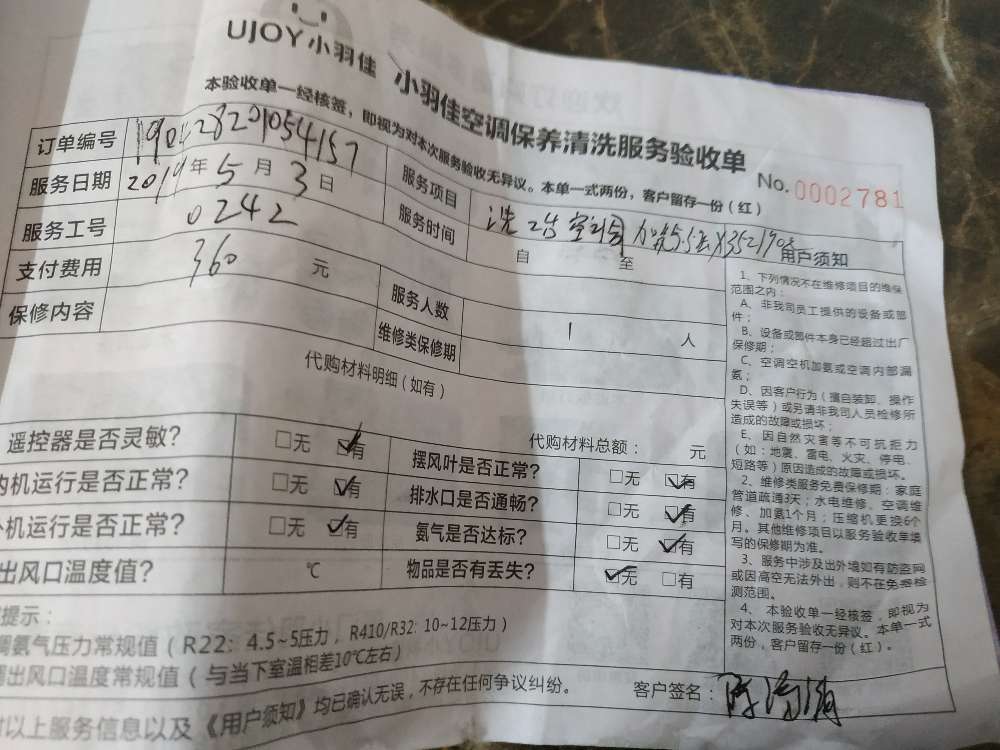 UJOY小羽佳 小羽佳空调保养清洗服务验收单
本验收单一经核签，即视为对本次服务验收无异议。本单一式两份，客户留存一份（红）
No.0002781
订单编号
服务项目
服务日期 2019年5月3日
服务时间 自 至
服务工号 0242
支付费用 360 元
服务人数 1 人
保修内容
维修类保修期
代购材料明细（如有）
代购材料总额： 元
遥控器是否灵敏? 无 有
摆风叶是否正常? 无 有
机运行是否正常? 无 有
排水口是否通畅? 无 有
机运行是否正常? 无 有
氨气是否达标? 无 有
出风口温度值? ℃
物品是否有丢失? 无 有
提示：
氨气压力常规值（R22：4.5~5压力，R410/R32: 10~12压力）
出风口温度常规值（与当下室温相差10℃左右）
以上服务信息以及《用户须知》均已确认无误，不存在任何争议纠纷。
客户签名：
用户须知
1、下列情况不在维修项目的维保
范围之内：
A、非我司员工提供的设备或部
件；
B、设备或部件本身已经超过出厂
保修期；
C、空调空机加氨或空调内部漏
氨；
D、因客户行为（擅自装卸、操作
失误等）或另请非我司人员检修所
造成的故障或损坏；
E、因自然灾害等不可抗拒力
（如：地震、雷电、火灾、停电、
短路等）原因造成的故障或损坏。
2、维修类服务免费保修期：家庭
管道疏通3天；水电维修、空调维
修、加氨1个月；压缩机更换6个
月。其他维修项目以服务验收单填
写的保修期为准。
3、服务中涉及出外墙如有防盗网
或因高空无法外出，则不在免费检
测范围。
4、本验收单一经核签，即视为
对本次服务验收无异议。本单一式
两份，客户留存一份（红）。